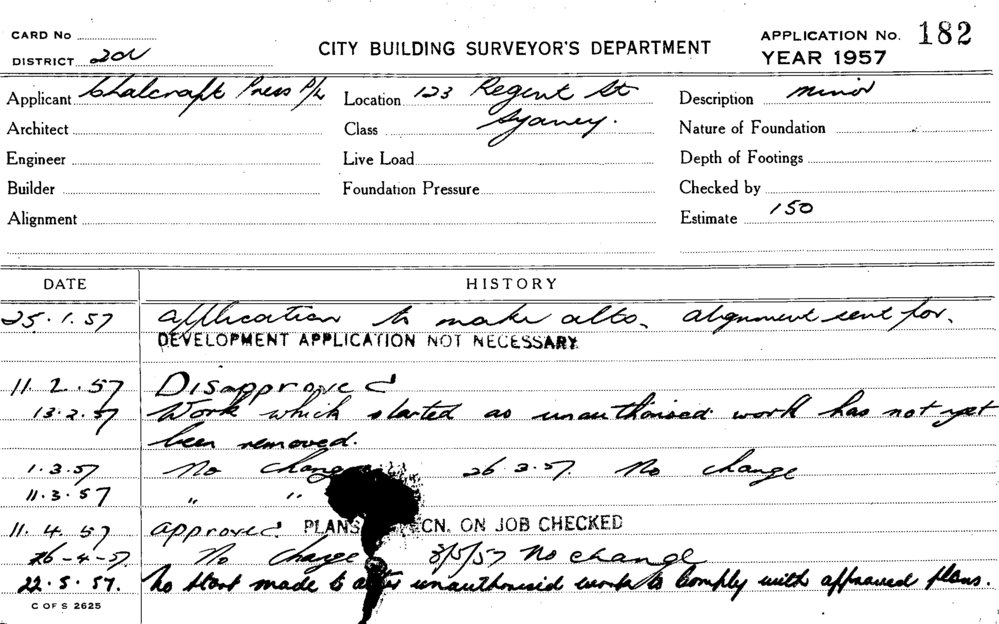 CARD No
CITY BUILDING SURVEYOR'S DEPARTMENT
APPLICATION No. 182
DISTRICT
YEAR 1957
Applicant Chalcraft Press P/L Location 123 Regent St Description minor
Architect Class Sydney. Nature of Foundation
Engineer Live Load Depth of Footings
Builder Foundation Pressure Checked by
Alignment Estimate 150
DATE HISTORY
25.1.57 application to make alts. alignment sent for.
DEVELOPMENT APPLICATION NOT NECESSARY
11.2.57 Disapproved
13.2.57 Work which started as unauthorised work has not yet
been removed.
1.3.57 No change 26.3.57. No change
11.3.57 " "
11.4.57 approved. PLANS CN. ON JOB CHECKED
26-4-57. No change 8/5/57 No change
22.5.57. No start made to alter unauthorised work to comply with approved plans.
C OF S 2625